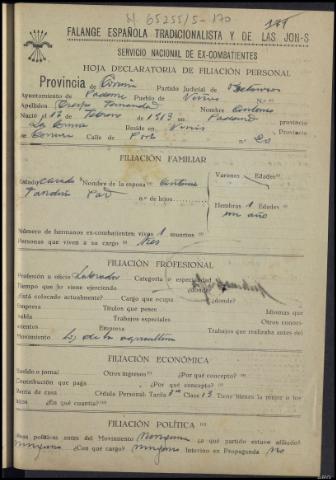 N. 65255/5-170
FALANGE ESPAÑOLA TRADICIONALISTA Y DE LAS JON-S
SERVICIO NACIONAL DE EX-COMBATIENTES
HOJA DECLARATORIA DE FILIACIÓN PERSONAL
Provincia de Coruña Partido Judicial de Betanzos
Ayuntamiento de Paderne Pueblo de Viñas
Apellidos Crespo Nombre Antonio
Nació el 18 Febrero de 1913 en Paderne provincia
La Coruña Reside en Viñas provincia
Coruña Calle de n.º 20
FILIACIÓN FAMILIAR
Estado casado Nombre de la esposa
n.º de hijos
Varones Edades
Hembras 1 Edades
un año
Número de hermanos ex-combatientes vivos 1 muertos
Personas que viven a su cargo tres
FILIACIÓN PROFESIONAL
Profesión u oficio Labrador Categoría o especialidad
Tiempo que lo viene ejerciendo ¿dónde?
Está colocado actualmente? Cargo que ocupa ¿dónde?
Títulos que posee Idiomas que
habla Trabajos especiales Otros conoci-
mientos Empresa Trabajos que realizaba antes del
Movimiento Los de la agricultura
FILIACIÓN ECONÓMICA
Sueldo o jornal Otros ingresos ¿Por qué concepto?
Contribución que paga ¿Por qué concepto?
Renta de casa Cédula Personal: Tarifa Clase 13 Tiene bienes la mujer o los
hijos ¿En qué cuantía?
FILIACIÓN POLÍTICA
Ideas políticas antes del Movimiento Ninguna ¿a qué partido estuvo afiliado?
ninguno ¿Con qué cargo? ninguno Intervino en Propaganda No